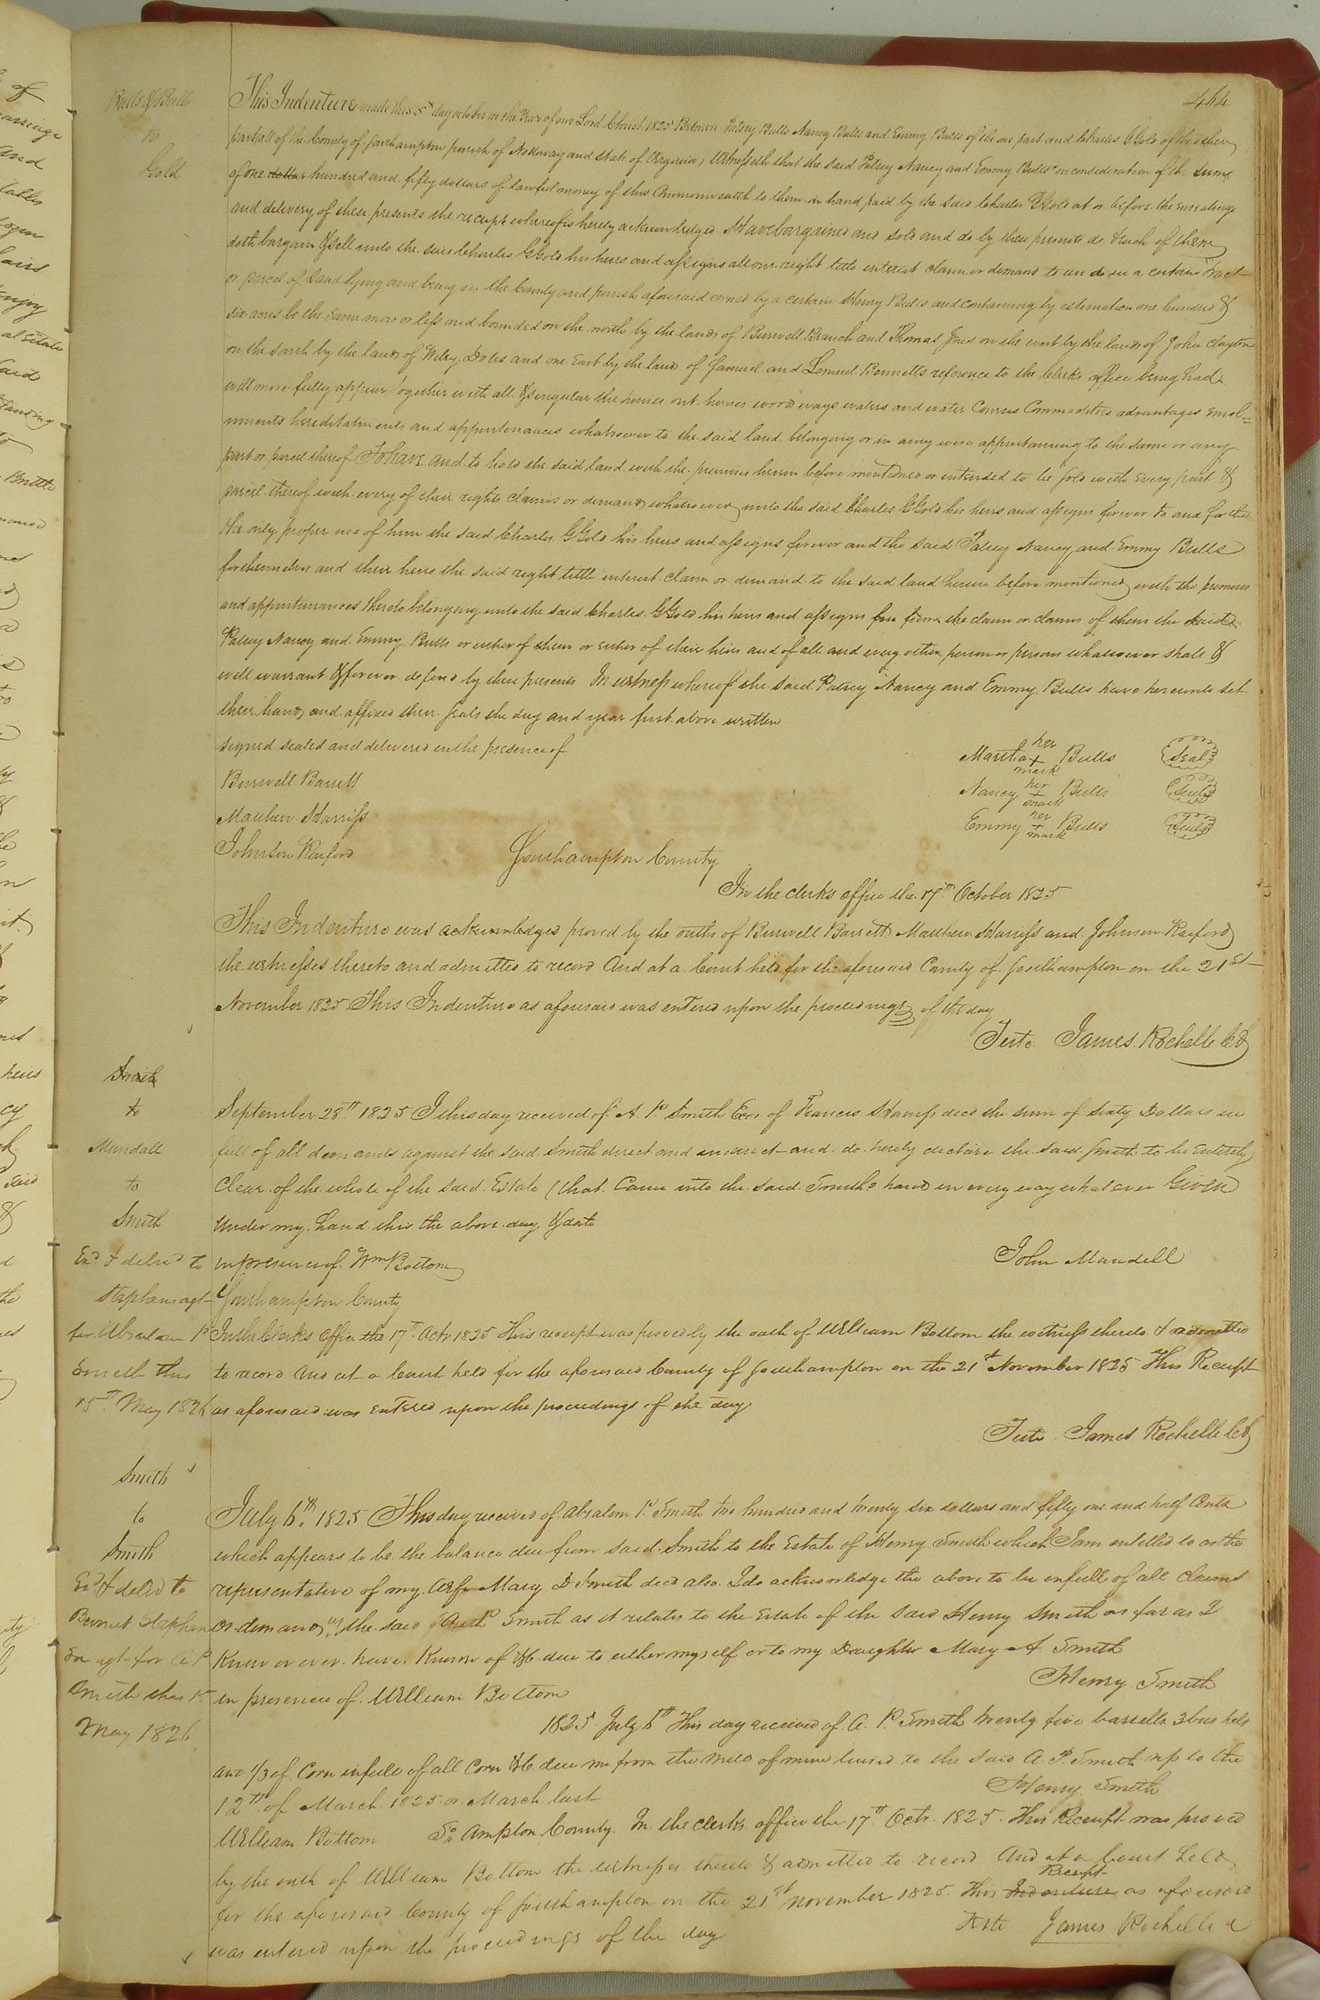 464
Bulls & Bulls
to
Gold
This Indenture made this 5th day october in the Year of our Lord Christ 1825 Between Patsey Bulls Nancy Bulls and Emmy Bulls of the one part and Charles G Gold of the other
part all of the County of Southampton parish of Nottoway and state of Virginia, Witnesseth that the said Patsey Nancy and Emmy Bulls in consideration of the sume
of one dollar hundred and fifty dollars of lawful money of this Commonwealth to them in hand paid by the said Charles G Gold at or before the Ensealing
and delivery of these presents the receipt whereof is hereby acknowledged Have bargained and sold and do by these presents do Each of them
doth bargain & sell unto the said Charles G Gold his heirs and assigns all our right title interest claim or demand to an in a certain tract
or parcel of Land lying and being in the County and parish aforesaid owned by a certain Henry Bulls and containing by estimation one hundred &
six acres be the same more or less and bounded on the north by the lands of Burwell Branch and Thomas Jones on the west by the lands of John Clayton
on the south by the lands of Wiley Doles and one East by the land of Samuel and Lemuel Bennetts reference to the Clerks office being had
will more fully appear together with all & singular the houses out houses woods ways waters and water Courses Commodities advantages Emol=
uments hereditaments and appurtenances whatsoever to the said land belonging or in any wise appertaining to the same or any
part or parcel thereof To have and to hold the said land with the premises herein before mentioned or intended to be sold with Every part &
parcel thereof with every of their rights claims or demands whatsoever unto the said Charles G Gold his heirs and assigns forever to and for the
the only proper use of him the said Charles G Gold his heirs and assigns forever and the said Patsey Nancy and Emmy Bulls
for themselves and their heirs the said right title interest claim or demand to the said land herein before mentioned with the premises
and appurtenances thereto belonging unto the said Charles G Gold his heirs and assigns free from the claim or claims of them the said
Patsey Nancy and Emmy Bulls or either of them or Either of their heirs and of all and every other person or persons whatsoever shall &
will warrant & forever defend by these presents In witness whereof the said Patsey Nancy and Emmy Bulls have hereunto set
their hands and affixed their seals the day and year first above written
signed sealed and delivered in the presence of
Burwell Barrett
Matthew Harriss
Johnson Raiford
her
Martha + Bulls Seal
mark
her
Nancy + Bulls Seal
mark
her
Emmy + Bulls Seal
mark
Southampton County
In the clerks office the 17th October 1825
This Indenture was acknowledged proved by the oaths of Burwell Barrett Matthew Harriss and Johnson Raiford
the witnesses thereto and admitted to record And at a Court held for the aforesaid County of Southampton on the 21st
November 1825 This Indenture as aforesaid was entered upon the proceedings of the day
Teste James Rochelle CC
Smith
to
Mundall
to
Smith
Exd & delivd to
Stephens agt
for Absalom P
Smith this
15th May 1826
September 28th 1825 I this day received of A. P. Smith Exr. of Francis Stamp decd the sum of sixty Dollars in
full of all demands against the said Smith direct and indirect and do hereby declare the said Smith to be Entirely
Clear of the whole of the said Estate (that Came into the said Smiths hands in every way whatever Given
under my hand this the above day & date
in presence of Wm Bottom
John Mundell
Southampton County
In the Clerks office the 17th Octr 1825 This receipt was proved by the oath of William Bottom the witness thereto & admitted
to record And at a Court held for the aforesaid County of Southampton on the 21st November 1825 This Receipt
as aforesaid was Entered upon the proceedings of the day
Teste James Rochelle CC
Smith
to
Smith
Exd & delivd to
Bennet Stephen
son agt for A P
Smith this 15
May 1826
July 6th 1825 This day received of Absalom P. Smith two hundred and twenty six dollars and fifty one and half Cents
which appears to be the balance due from said Smith to the Estate of Henry Smith which I am entitled to as the
representative of my wife Mary D Smith decd also I do acknowledge the above to be in full of all claims
or demands the said Smith as it relates to the Estate of the said Henry Smith as far as I
know or ever have known of &c due to either myself or to my Daughter Mary A. Smith
in presence of William Bottom
Henry Smith
1825 July 6th This day received of A. P. Smith twenty five barrells 3 bushels
and 1/3 of Corn in full of all Corn &c due me from the Mill of mine leased to the said A. P. Smith up to the
12th of March 1825 or March last
Henry Smith
William Bottom So Ampton County. In the clerks office the 17th Octr 1825. This Receipt was proved
by the oath of William Bottom the witness thereto & admitted to record And at a Court held
for the aforesaid County of Southampton on the 21st November 1825. This Indenture Receipt as aforesaid
was entered upon the proceedings of the day
Teste James Rochelle cc